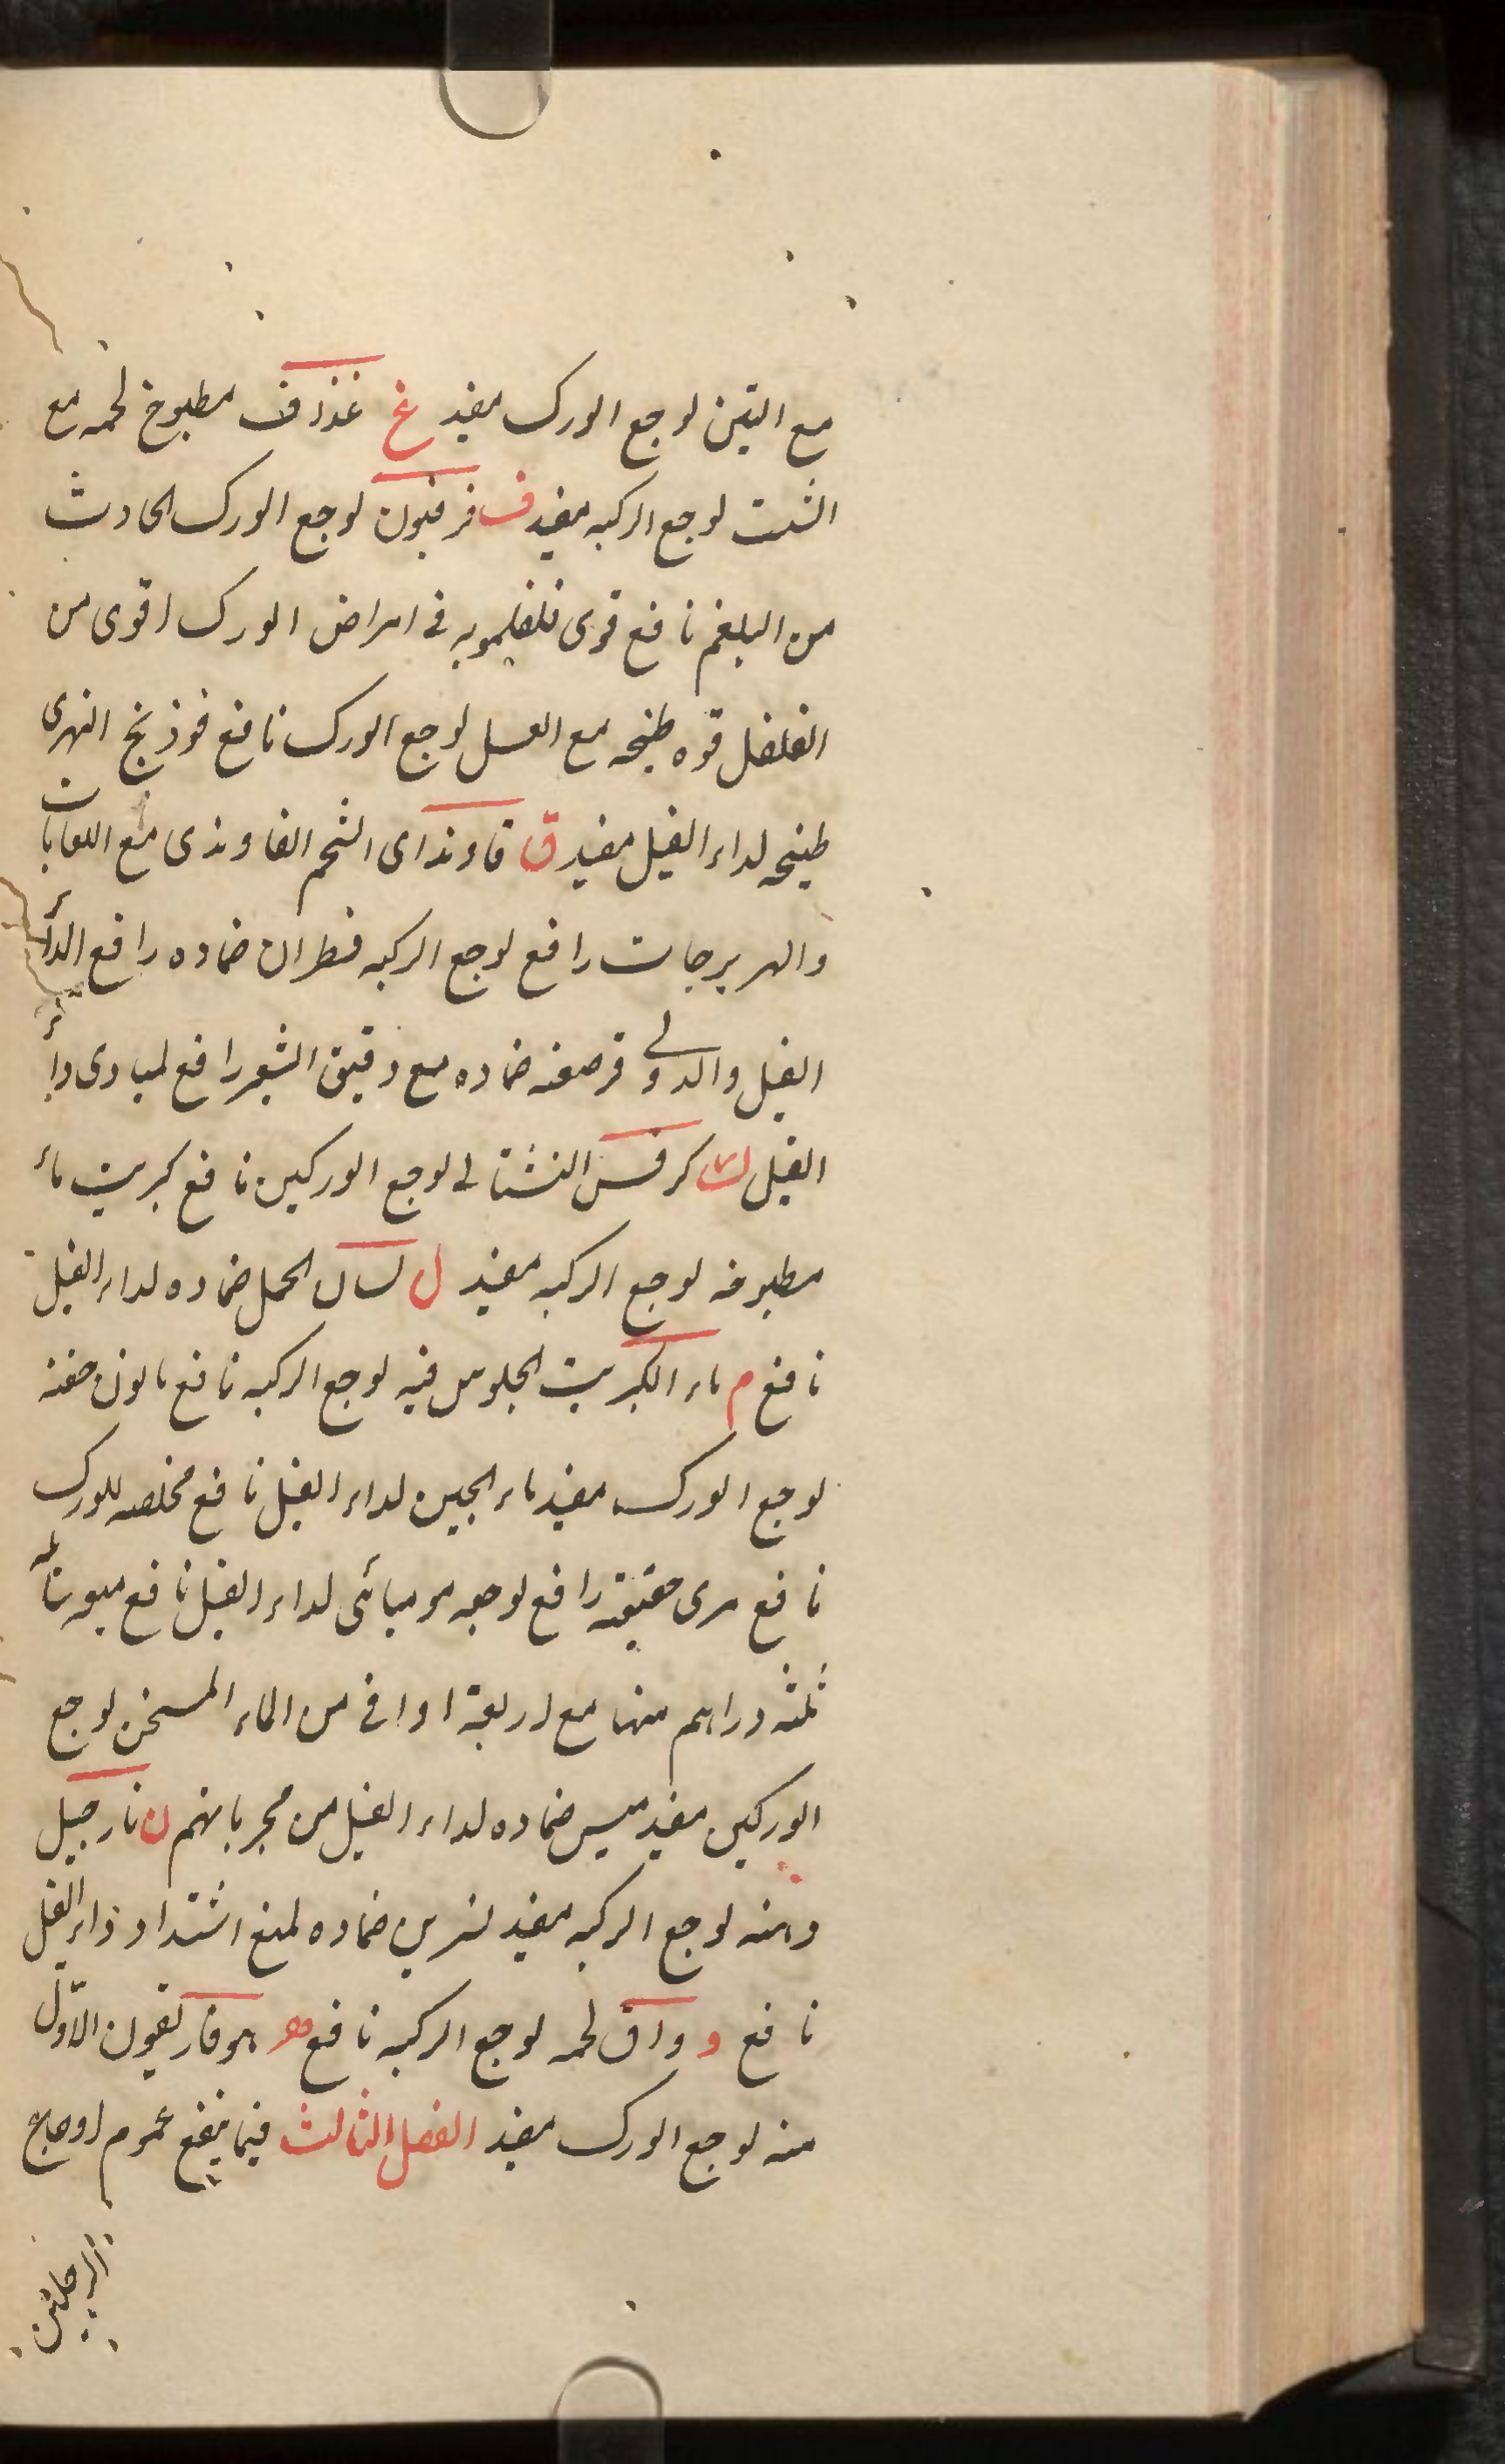 مع التين لوجع الورك مفيد غ غذاف مطبوخ لحمه مع
الشبت لوجع الركبه مفيد ف فرفيون لوجع الورك الحادث
من البلغم نافع قوى فلفلمويه فى امراض الورك اقوى من
الفلفل قوه طبخه مع العسل لوجع الورك نافع فوذنج النهرى
طبيخه لداء الفيل مفيد ق قاوند اى الشحم القاوندى مع اللعابات
والهريرجات رافع لوجع الركبه قطران ضماده رافع الداء
الفيل والدوالى قرصعنه ضماده مع دقيق الشعير رافع لمبادى داء
الفيل ك كرفس لوجع الوركين نافع كبريت ماء
مطبوخه لوجع الركبه مفيد ل لسان الحمل ضماده لداء الفيل
نافع م ماء الكبريت الجلوس فيه لوجع الركبه نافع حقنه
لوجع الورك مفيد ماء الجبن لداء الفيل نافع مخلصه للورك
نافع مرى حقنته رافع لوجعه موميائى لداء الفيل نافع ميعه سائله
ثلثه دراهم منها مع اربعة اواقى من الماء المسخن لوجع
الوركين مفيد ميس ضماده لداء الفيل من مجرباتهم ن نارجيل
دهنه لوجع الركبه مفيد نسرين ضماده لمنع اشتداد داء الفيل
نافع و واق لحمه لوجع الركبه نافع ه هوفاريقون الاول
منه لوجع الورك مفيد الفصل الثالث فيما ينفع عموم اوجاع
الرجلين